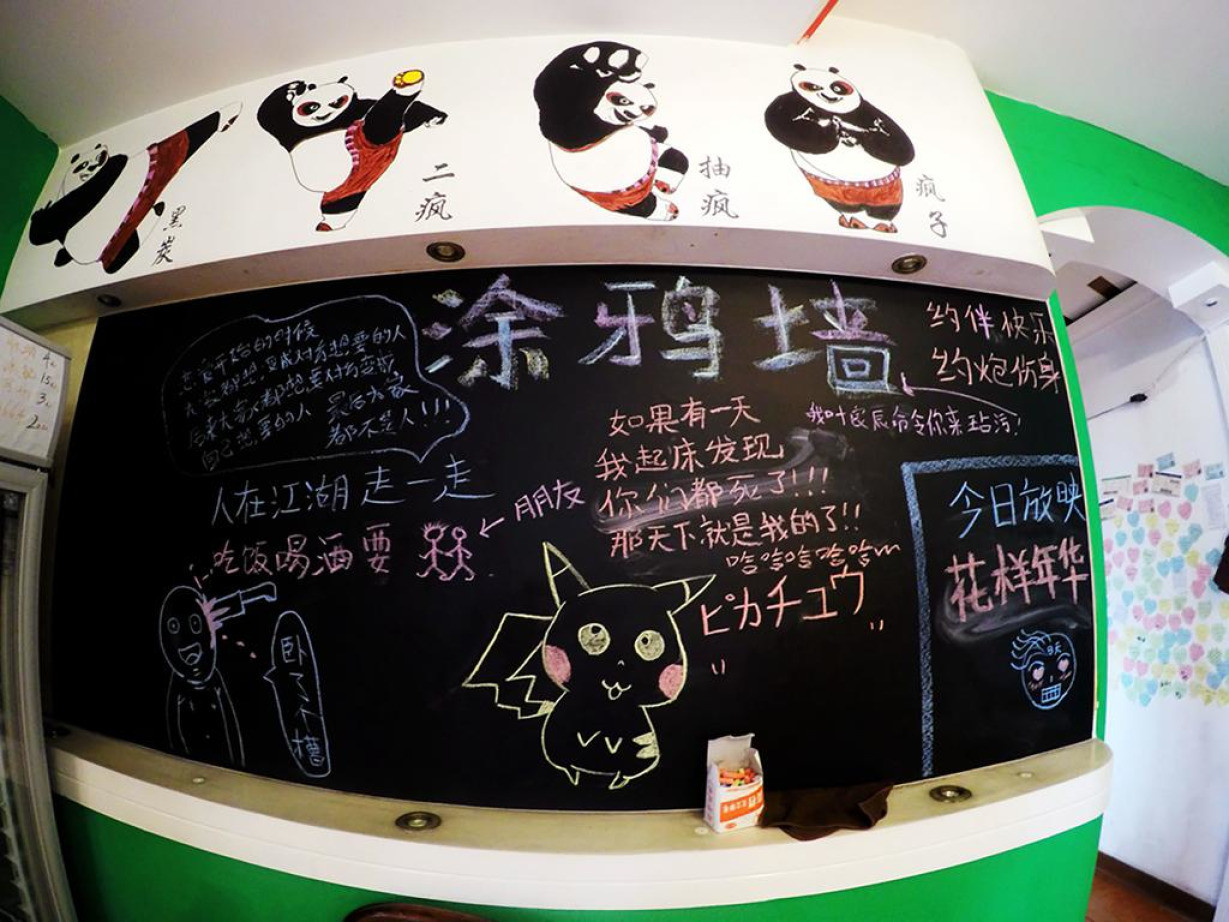 黑炭
二疯
抽疯
疯子
涂鸦墙
约伴快乐
约炮伤身
我叶良辰命令你来玷污!
恋爱开始的时候
大家都想变成对方想要的人
后来大家都想要对方变成
自己想要的人 最后大家
都不是人!!!
人在江湖走一走
吃饭喝酒要
朋友
如果有一天
我起床发现
你们都死了!!!
那天下就是我的了!!
哈哈哈哈哈
ピカチュウ
卧了个槽
今日放映
花样年华